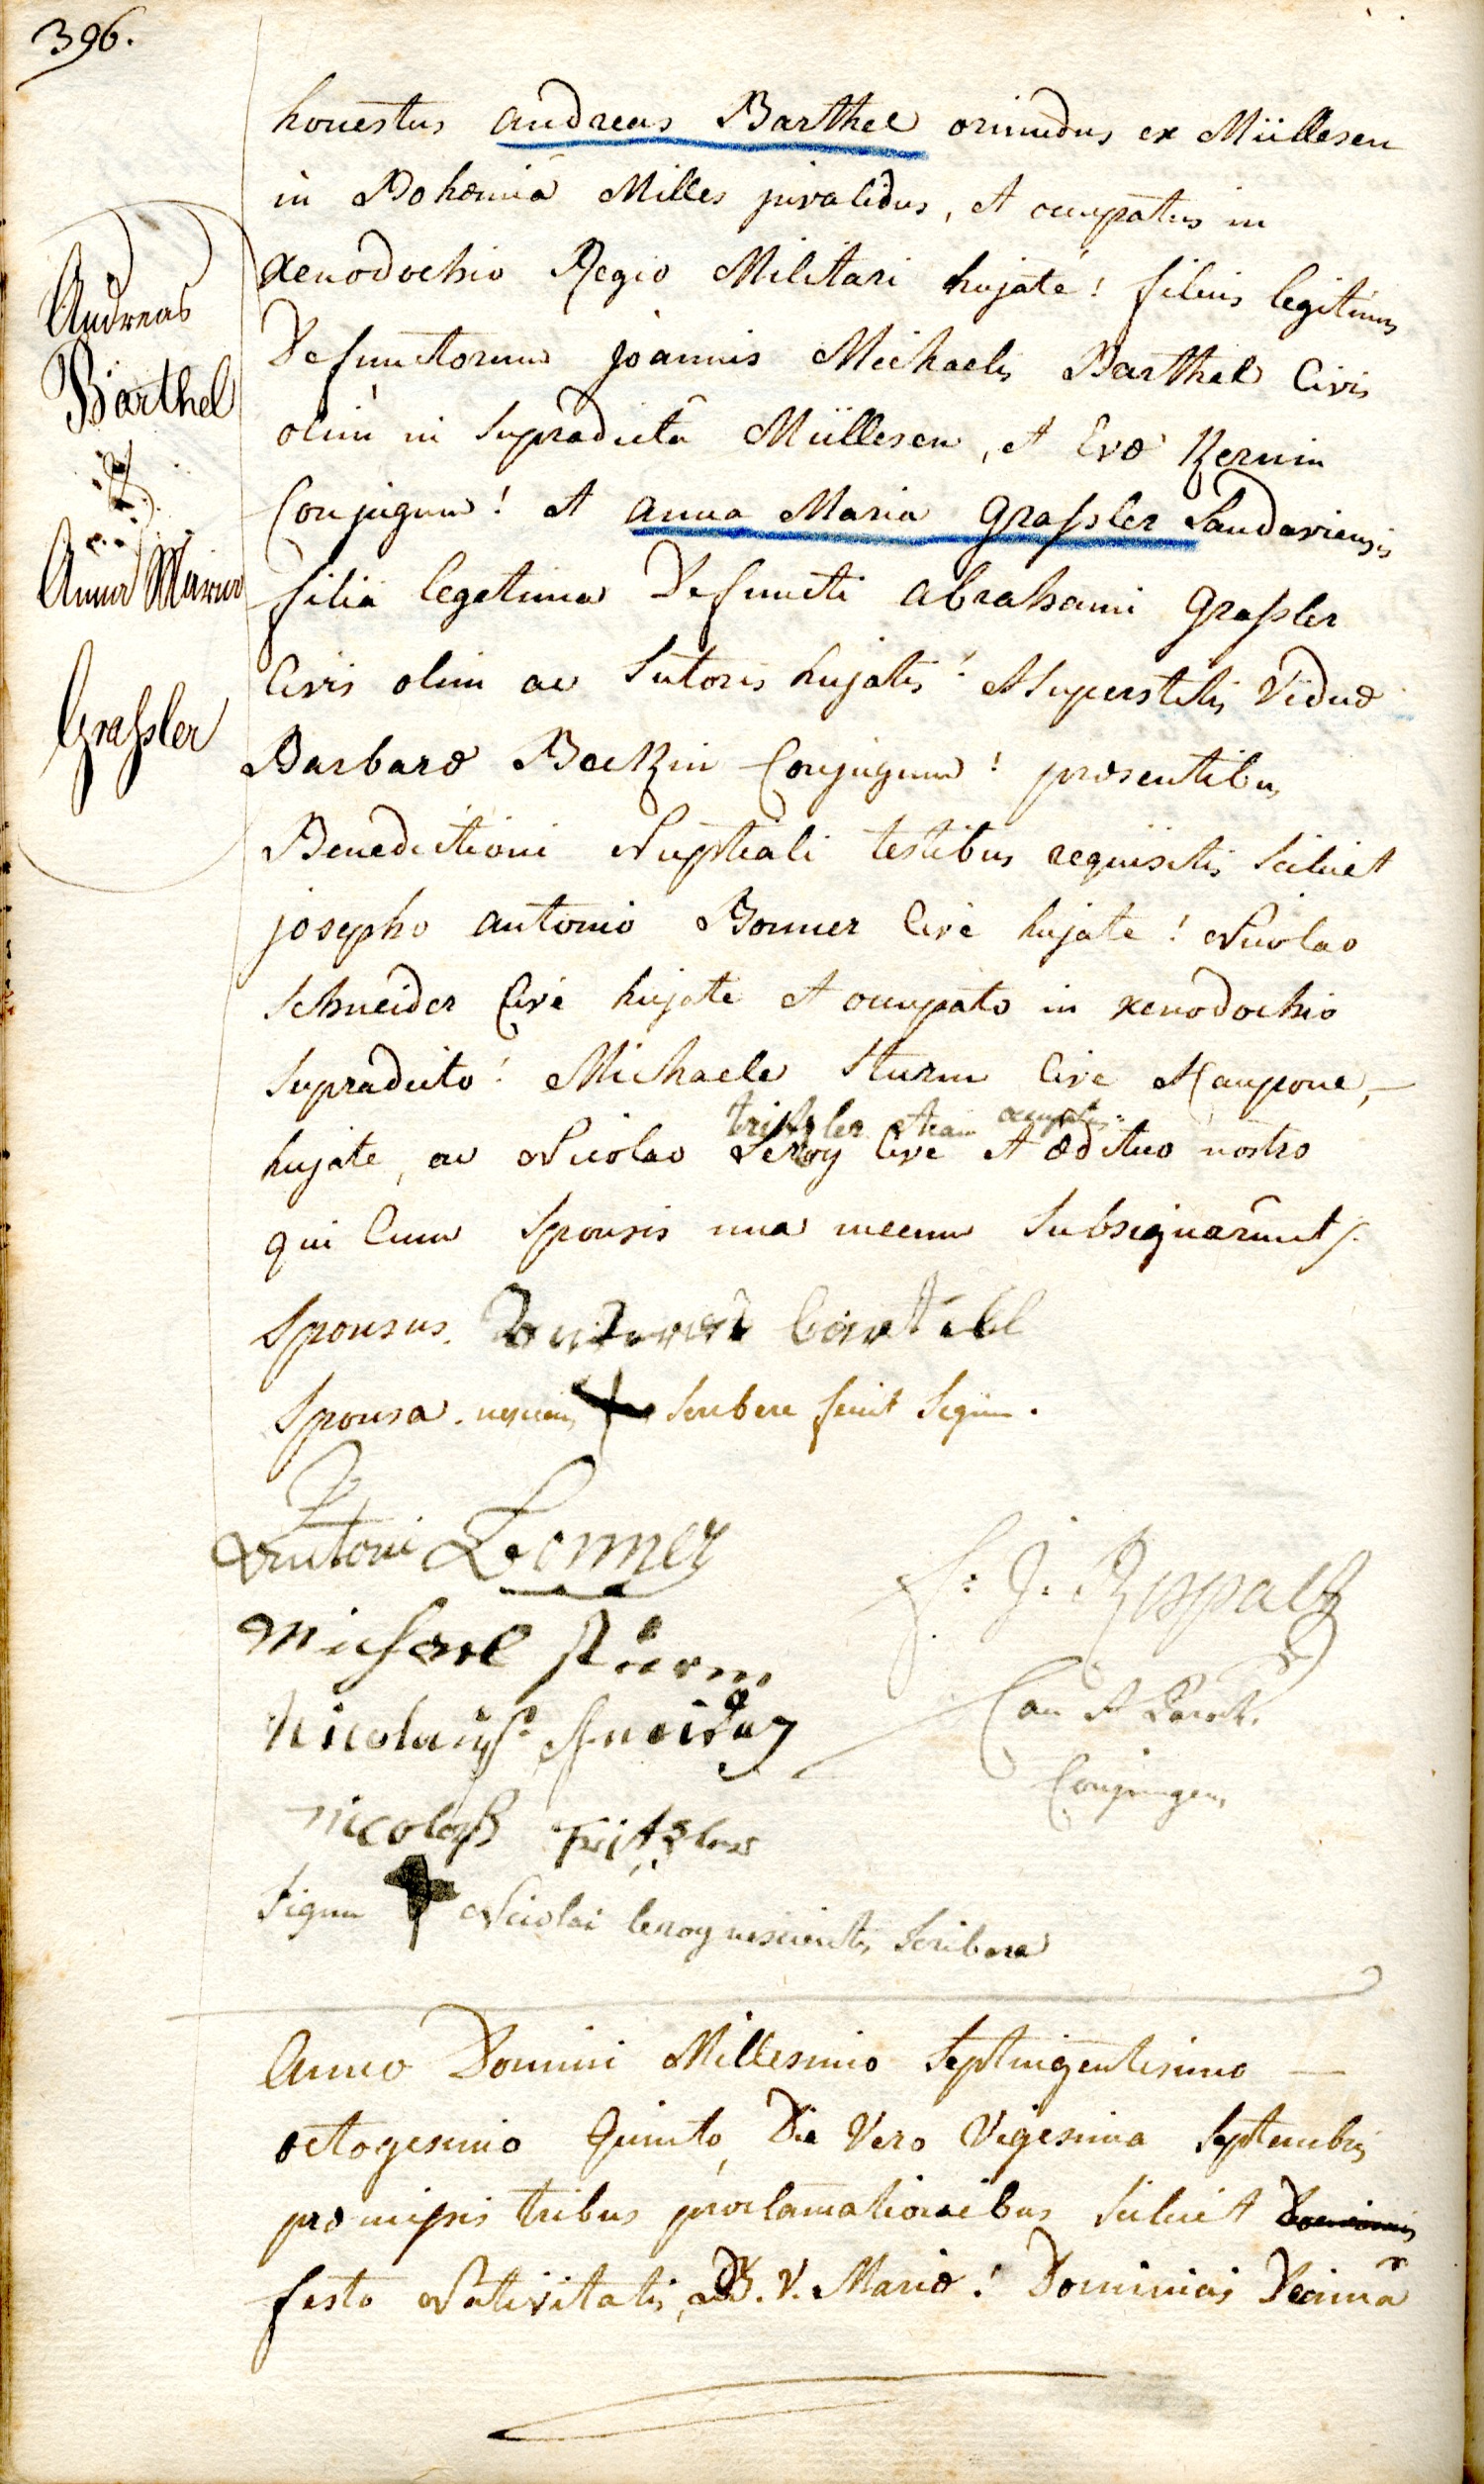 396.
honestus Andreas Barthel oriundus ex Müllesen
in Bohœmiâ Milles invalidus, et occupatus in
Xenodochio Regio Militari hujate! filius legitimus
Defunctorum joannis Michaelis Barthel Civis
olim in supradicta Müllesen, et Evæ Kernin
Conjugum! et anna Maria Grassler Landaviensis
filia legitima Defuncti abrahami Grassler
Civis olim ac Sutoris hujatis! et superstitis Viduæ
Barbaræ Beckin Conjugum! præsentibus
Benedictioni Nuptiali testibus requisitis scilicet
josepho antonio Bonner Cive hujate! Nicolao
Schneider Cive hujate et occupato in xenodochio
supradicto! Michaele Sturm Cive et Caupone,
hujate, ac Nicolao Leroy Cive et ædituo nostro
tritzler etiam occupatus
qui Cum Sponsis una mecum Subsignarunt/.
Sponsus. Andreas bartel
Sponsa. nesciens scribere fecit Signum.
Antoni Bonner
Michael Sturm
Nicolaus Schneider
Nicolaß Tritzler
Signum Nicolai leroy nescientis scribere
Can et Paroch.
Conjungens
Andreas
Barthel
et
Anna Maria
Grassler
Anno Domini Millesimo Septingentesimo
octogesimo Quinto, Die Vero Vigesima Septembris
præmissis tribus proclamationibus scilicet
festo Nativitatis B. V. Mariæ! Dominicis Decimâ